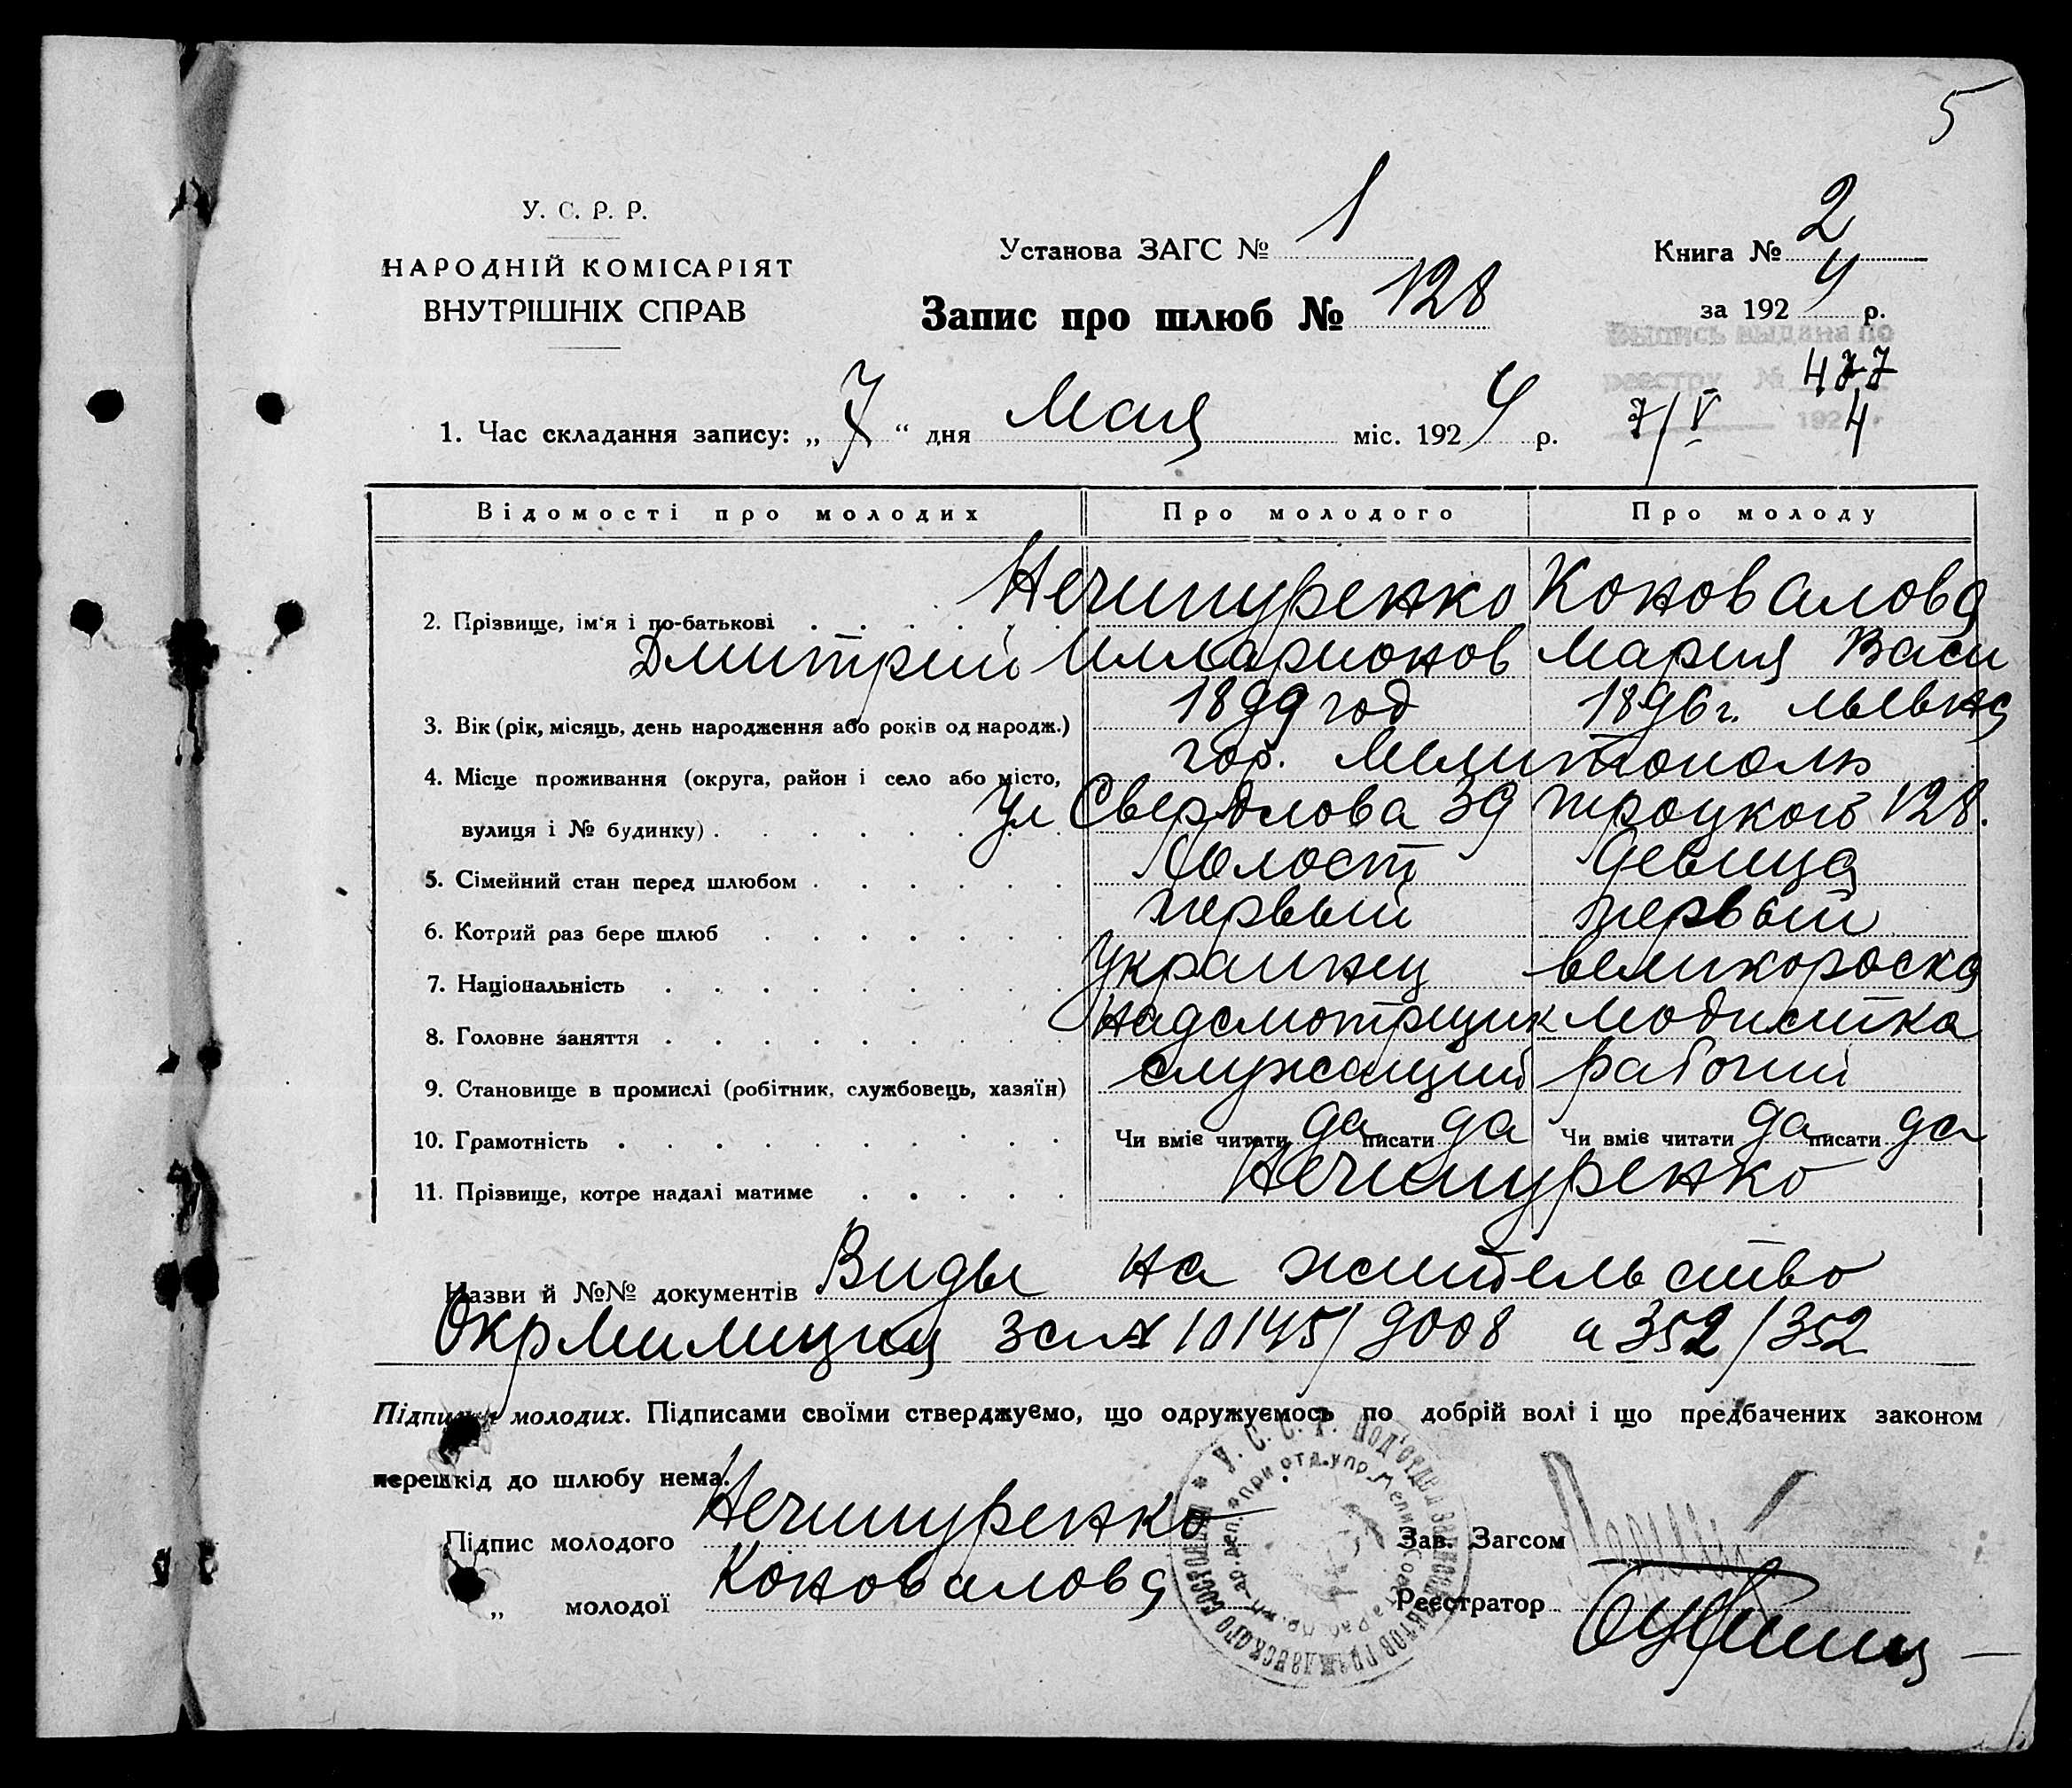 5
У. С. Р. Р.
НАРОДНІЙ КОМІСАРІЯТ
ВНУТРІШНІХ СПРАВ
Установа ЗАГС № 1
Книга № 2
Запис про шлюб № 128
за 1924 р.
Выпись выдана по
реестру № 477
7/V 1924 г
1. Час складання запису: „7“ дня Мая міс. 1924 р.
Відомості про молодих Про молодого Про молоду
2. Прізвище, ім'я і по-батькові Нечипуренко Коновалова
Дмитрий Илларионов Мария Васи
3. Вік (рік, місяць, день народження або років од народж.) 1899 год 1896 г. льевна
4. Місце проживання (округа, район і село або місто, гор. Мелитополь
вулиця і № будинку) Ул Свердлова 39 Троцкого 128.
5. Сімейний стан перед шлюбом Холост девица
6. Котрий раз бере шлюб первый первый
7. Національність Украинец великороска
8. Головне заняття Надсмотрщик модистка
9. Становище в промислі (робітник, службовець, хазяїн) служащий рабочий
10. Грамотність Чи вміє читати да писати да Чи вміє читати да писати да
11. Прізвище, котре надалі матиме Нечипуренко
Назви й №№ документів Виды на жительство
Окрмилиции за № 10145/9008 и 352/352
Підписи молодих. Підписами своїми стверджуємо, що одружуємось по добрій волі і що предбачених законом
перешкід до шлюбу нема.
Підпис молодого Нечипуренко
Зав. Загсом
„ молодої Коновалова
Реєстратор
У. С. С. Р. Под'отдел записи актов гражданского состояния
при отд. упр. Мелит.